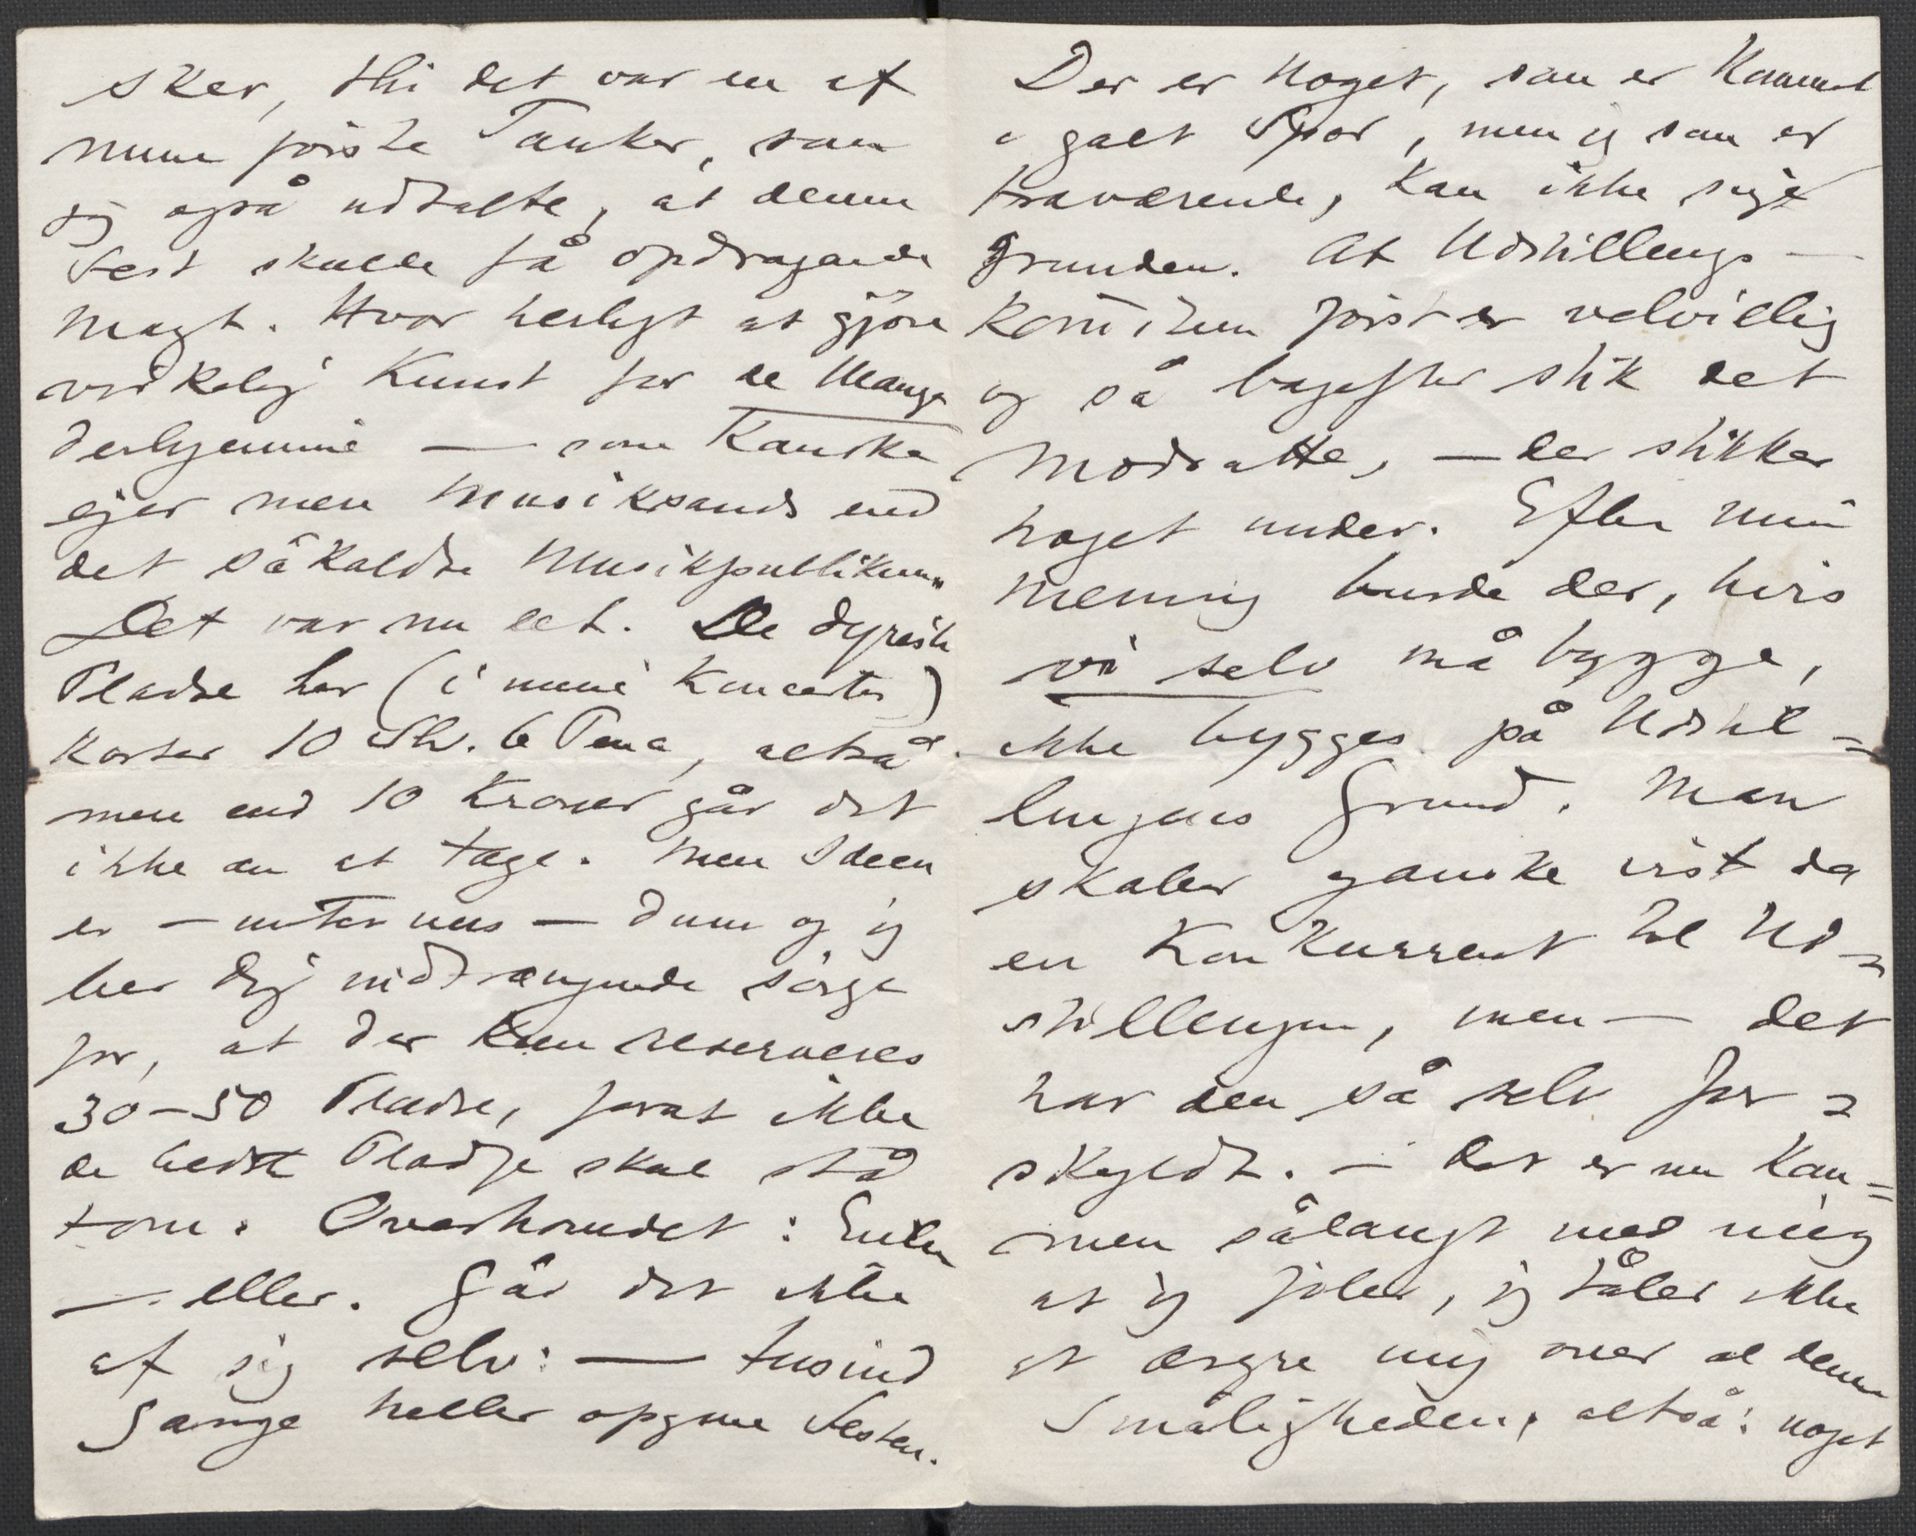 sker, thi det var en af
mine første Tanker, som
jeg også udtalte, at denne
Fest skulde få opdragende
Magt. Hvor herligt at gjøre
virkelig Kunst for de Mange
derhjemme — som kanske
ejer mere Musiksands end
det såkaldte Musikpublikum.
Det var nu det. De dyreste
Pladse her (i mine Koncerter)
koster 10 Sh. 6 Pence, altså
mere end 10 Kroner går det
ikke an at tage. Men Ideen
er — inter nos — dum og jeg
ber Dig indtrængende sørge
for, at der kun reserveres
30–50 Pladse, forat ikke
de bedste Pladse skal stå
tom. Overhovedet: Enten
— eller. Går det ikke
af sig selv: — tusind
Gange heller opgive Festen.
Der er noget, som er kommet
i galt Spor, men jeg som er
fraværende, kan ikke sige
Grunden. At Udstillings-
komiteen først er velvillig
og så bagefter stik det
modsatte, — der stikker
noget under. Efter min
Mening burde der, hvis
vi selv må bygge,
ikke bygges på Udstil=
lingens Grund. Man
skaber ganske vist da
en Konkurrent til Ud=
stillingen, men — det
har den så selv for=
skyldt. — Det er nu kom=
men sålangt med mig
at jeg føler, jeg tåler ikke
at ærgre mig over al denne
Småligheden, altså: noget